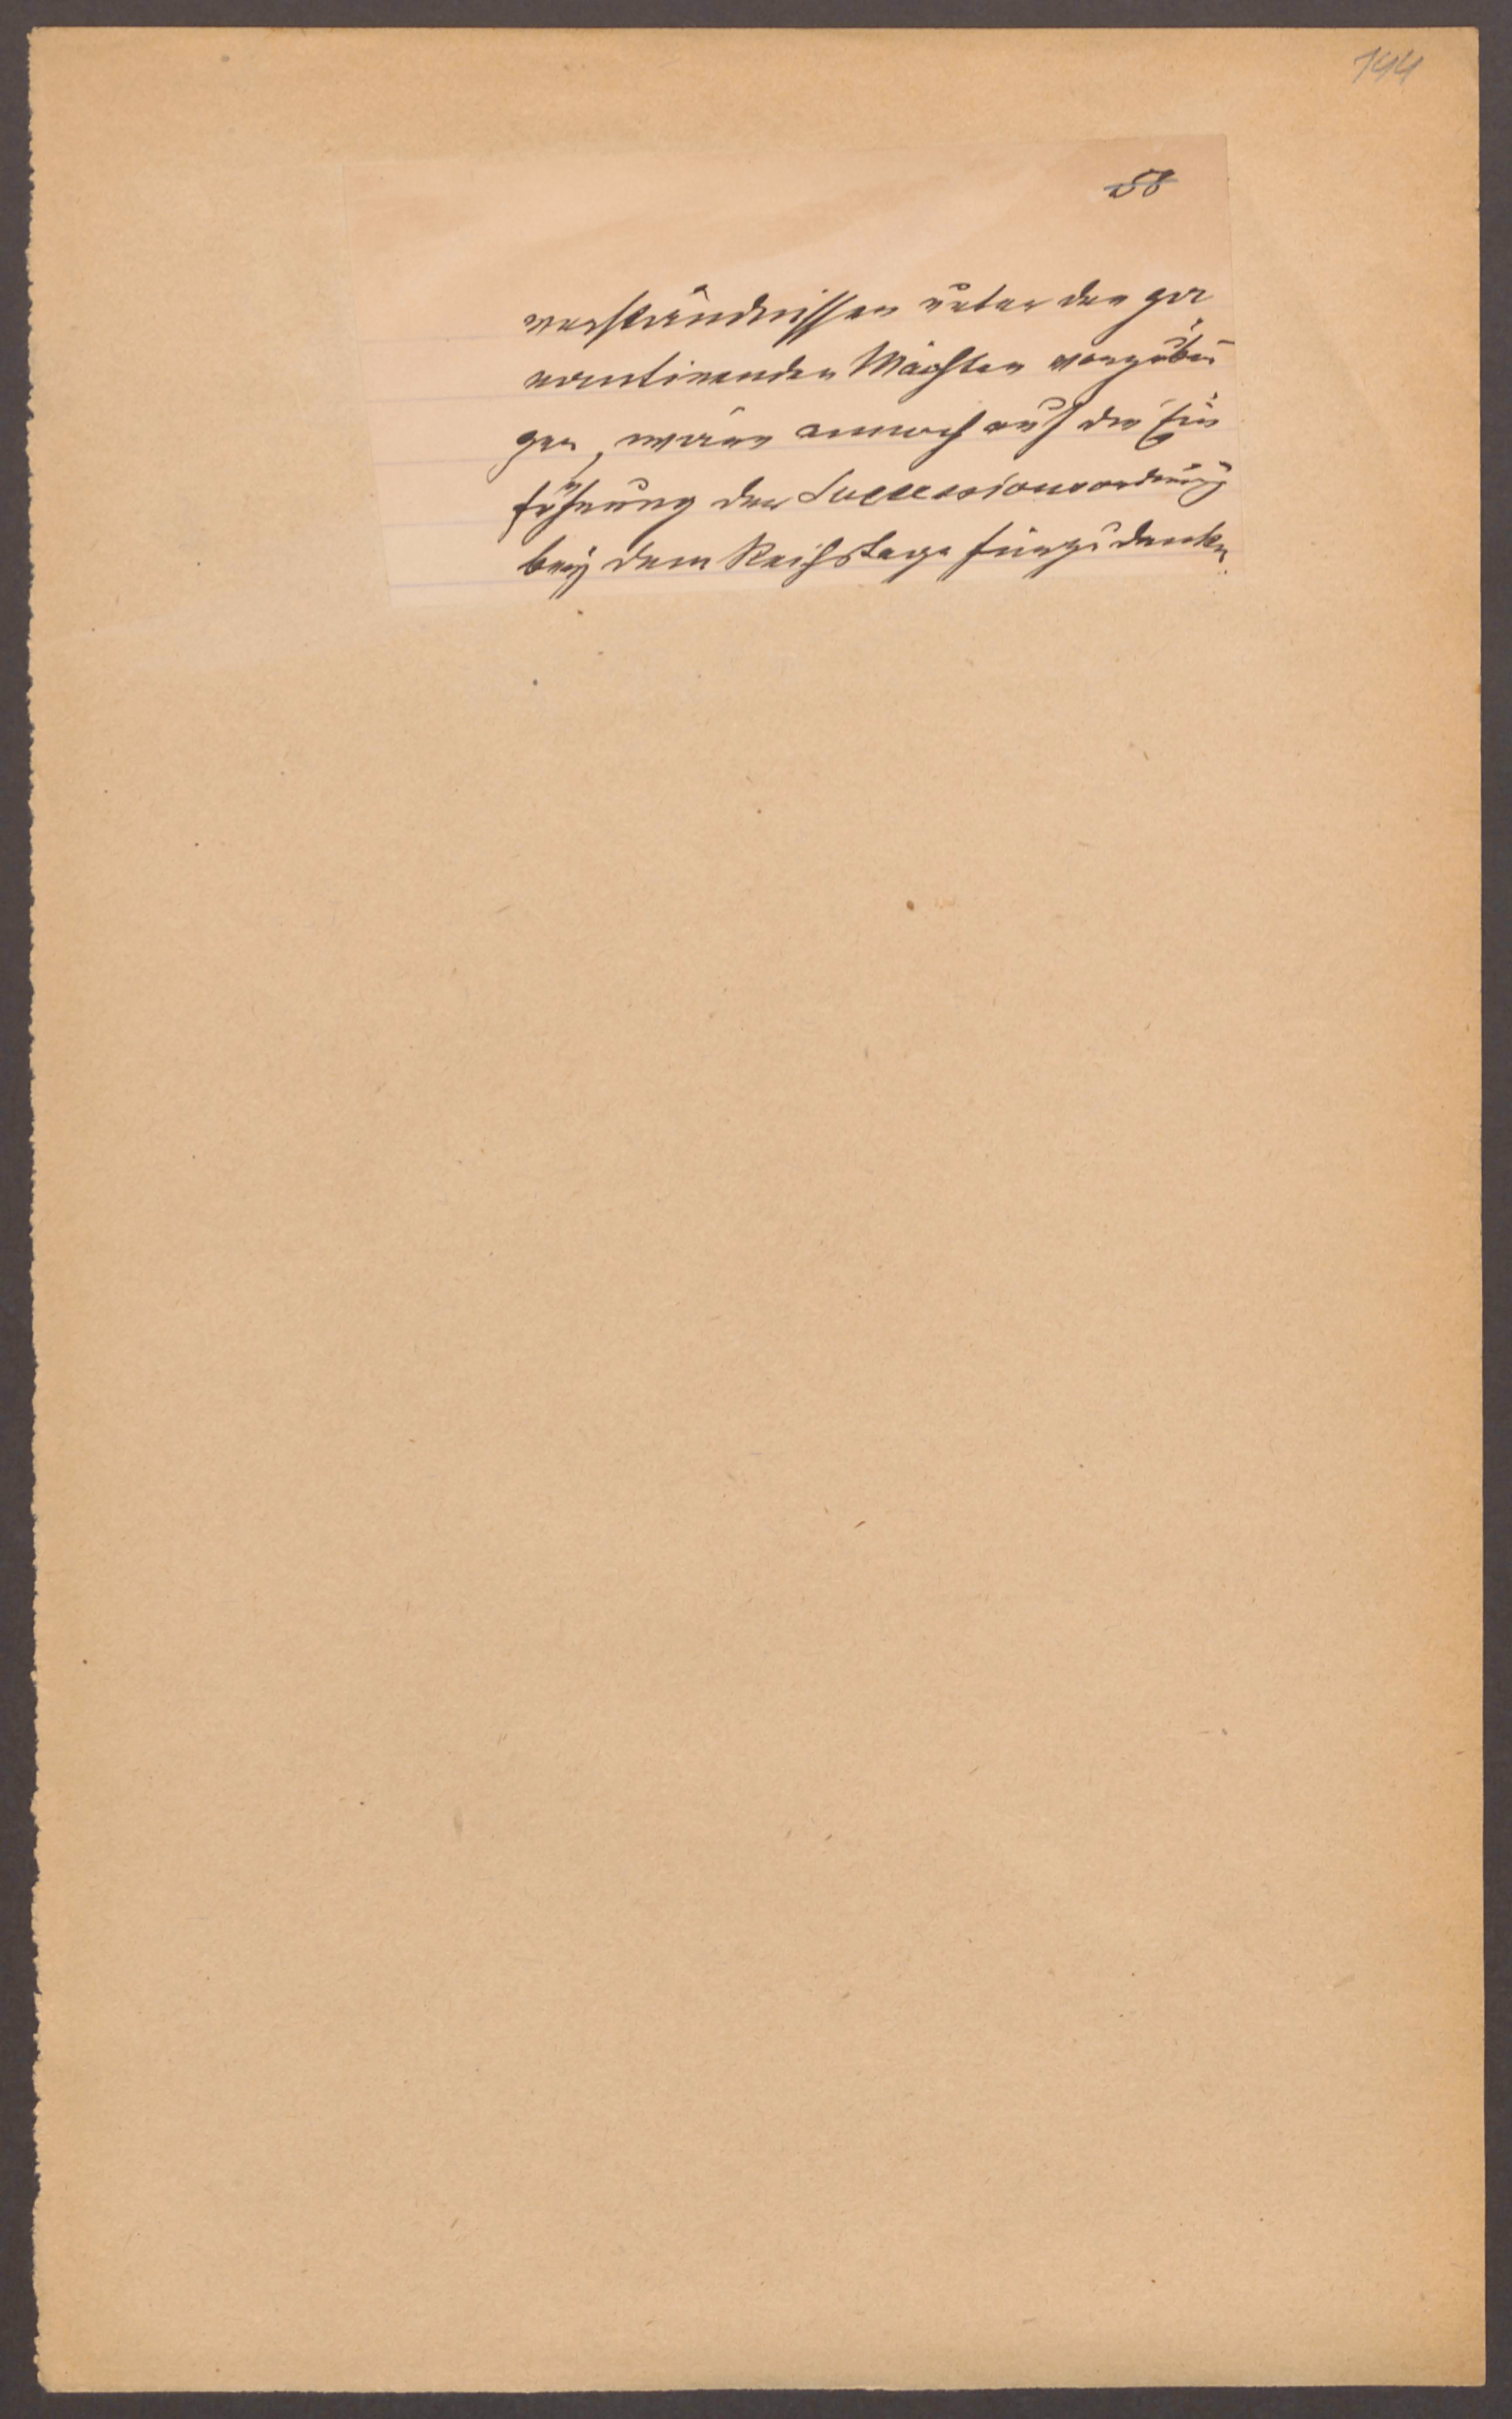 144
58
verständnissen unter den ga
rantirenden Mächten vorzubeu
gen, wäre annoch auf die Ein
führung der Successionsordnung
bey dem Reichstage fürzudenken